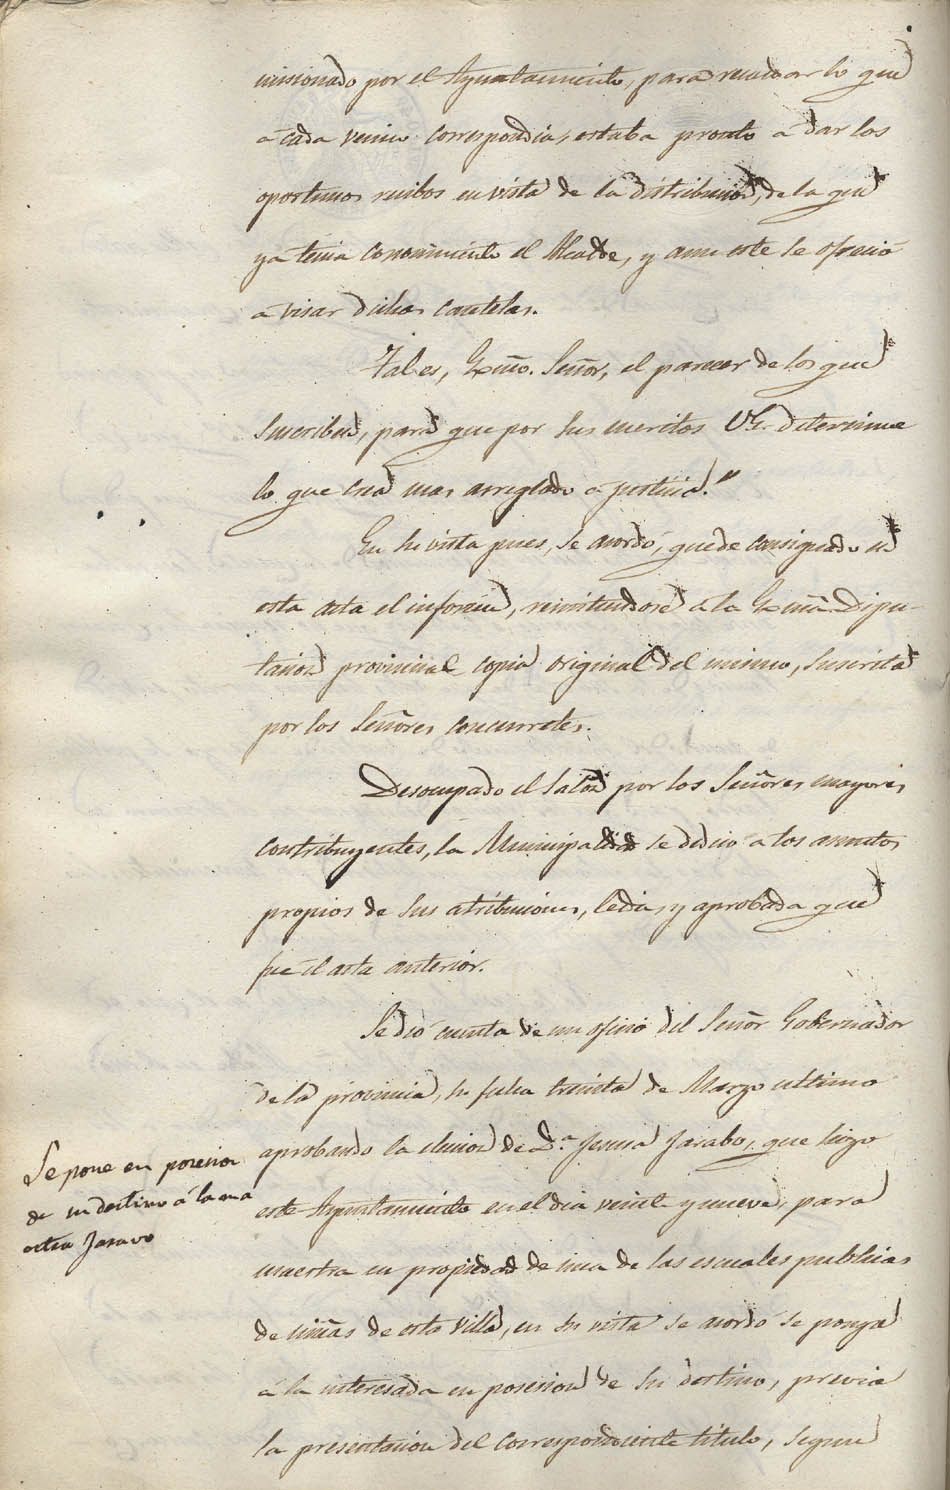 misionado por el Ayuntamiento, para recaudar lo que
a cada vecino correspondia, estaba pronto a dar los
oportunos recibos en vista de la distribucion, de la que
ya tenia conocimiento el Alcalde, y aun este se ofreció
a visar dichas cautelas.
Tal es, Excmo. Señor, el parecer de los que
suscriben, para que por sus meritos V.E. determine
lo que crea mas arreglado a justicia."
En su vista pues, se acordó, quede consignado en
esta acta el informe, remitiendose á la Excma. Dipu-
tacion provincial copia original del mismo, suscrita
por los Señores concurretes.
Desocupado el salon por los Señores mayores
contribuyentes, la Municipalidad se dedicó a los asuntos
propios de sus atribuciones, leida, y aprobada que
fue el acta anterior.
Se dió cuenta de un oficio del Señor Gobernador
de la provincia, su fecha treinta de Marzo ultimo
aprobando la eleccion de D.ª Jesusa Jarabo, que hizo
este Ayuntamiento en el dia veinte y nueve, para
maestra en propiedad de una de las escuales publicas
de niñas de esta villa, en su vista se acordó se ponga
á la interesada en posesion de su destino, previa
la presentacion del correspondiente titulo, segun
Se pone en posesion
de su destino á la ma
estra Jaravo